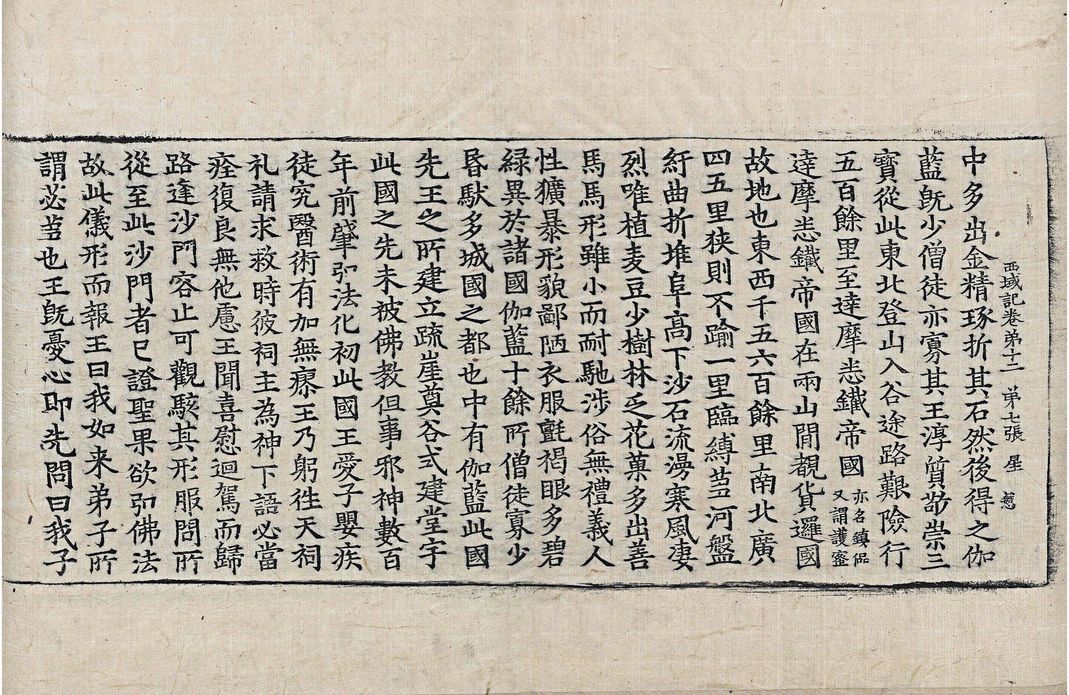 西域記卷第十二　第七張　星
中多出金精琢折其石然後得之伽
藍既少僧徒亦寡其王淳質敬崇三
寶從此東北登山入谷途路艱險行
五百餘里至達摩悉鐵帝國亦名鎮侃又謂護蜜
達摩悉鐵帝國在兩山閒覩貨邏國
故地也東西千五六百餘里南北廣
四五里狹則不踰一里臨縛芻河盤
紆曲折堆阜高下沙石流漫寒風凄
烈唯植麦豆少樹林乏花菓多出善
馬馬形雖小而耐馳涉俗無禮義人
性獷暴形貌鄙陋衣服氈褐眼多碧
綠異於諸國伽藍十餘所僧徒寡少
昬馱多城國之都也中有伽藍此國
先王之所建立疏崖奠谷式建堂宇
此國之先未被佛教但事邪神數百
年前肇弘法化初此國王愛子嬰疾
徒究醫術有加無瘳王乃躬往天祠
礼請求救時彼祠主為神下語必當
痊復良無他慮王聞喜慰迴駕而歸
路逢沙門容止可觀駭其形服問所
從至此沙門者已證聖果欲弘佛法
故此儀形而報王曰我如来弟子所
謂苾芻也王既憂心即先問曰我子